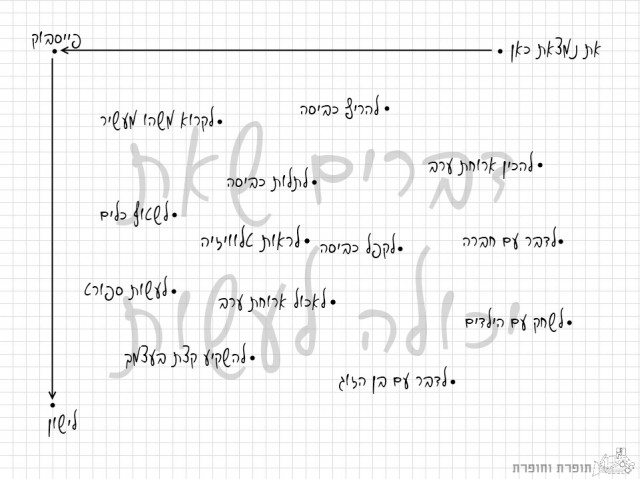 פייסבוק
את נמצאת כאן
להריץ כביסה
לקרוא משהו מעשיר
דברים שאת
להכין ארוחת ערב
לתלות כביסה
לשטוף כלים
לדבר עם חברה
לראות טלוויזיה
לקפל כביסה
יכולה לעשות
לעשות ספורט
לאכול ארוחת ערב
לשחק עם הילדים
להשקיע קצת בעצמך
לדבר עם בן הזוג
לישון
תופרת וחופרת